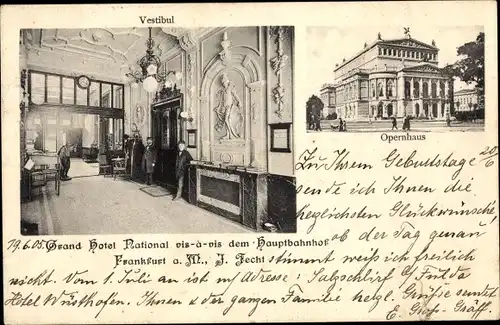 Vestibul
Opernhaus
20/6
Zu Ihrem Geburtstage
sende ich Ihnen die
herzlichsten Glückwünsche
ob der Tag genau
19.6.05. Grand Hotel National vis-à-vis dem Hauptbahnhof
Frankfurt a. M., J. Fecht stimmt weiss ich freilich
nicht. Vom 1. Juli an ist m/ Adresse: Salzschlirf b/ Fulda
Hotel Wüsthofen. Ihnen & der ganzen Familie herzl. Grüße sendet
E. Groß-Gräff.